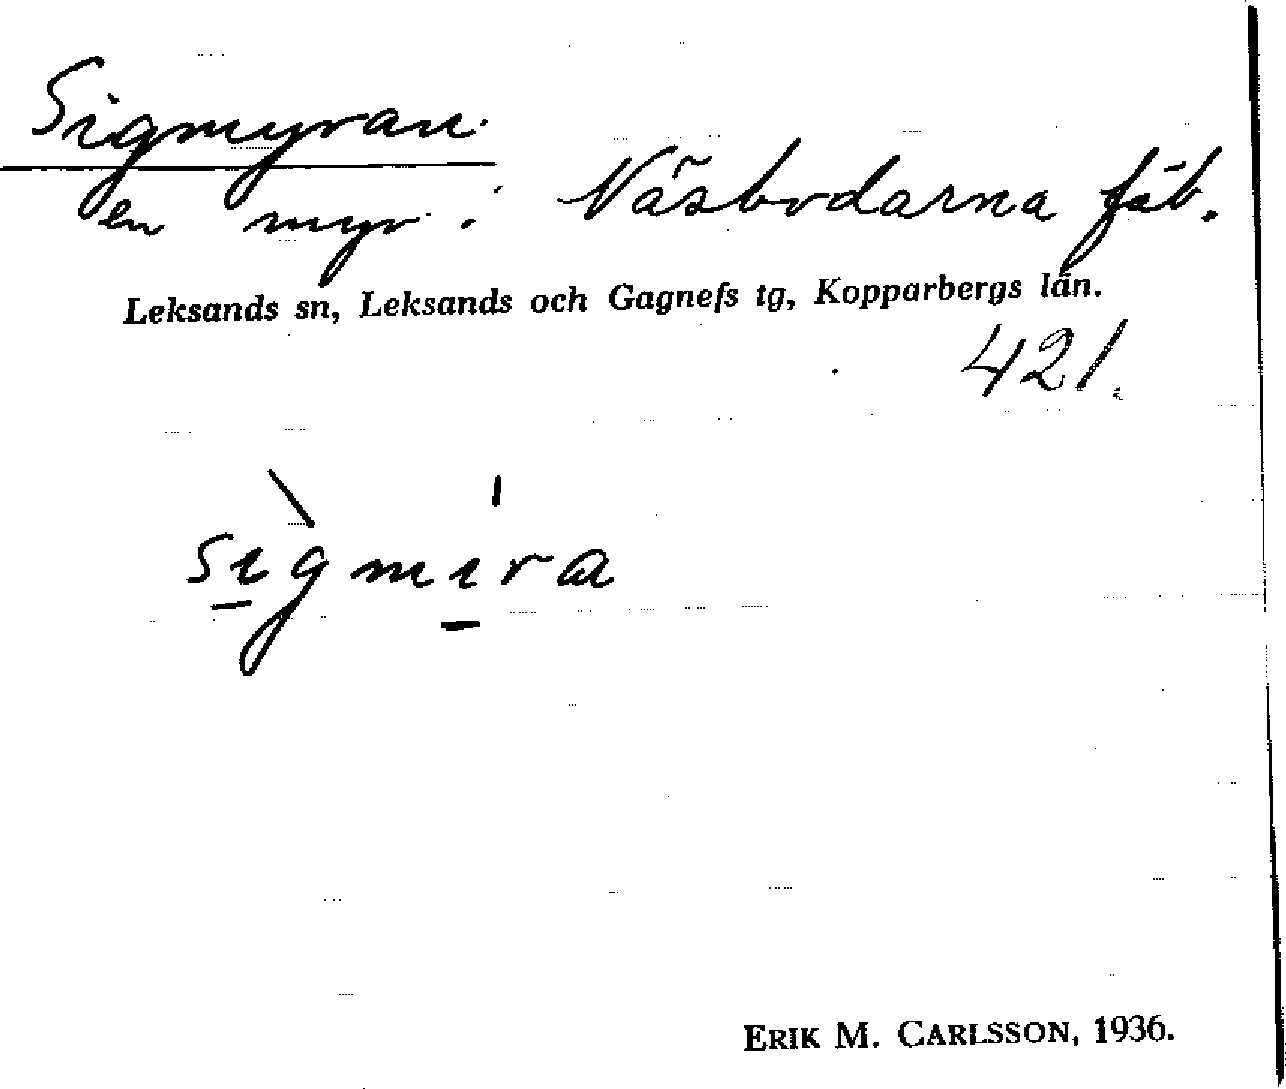 Sigmyran.
en myr. Näsbodarna fäb.
Leksands sn, Leksands och Gagnefs tg, Kopparbergs län.
421.
sìgmıra
ERIK M. CARLSSON, 1936.